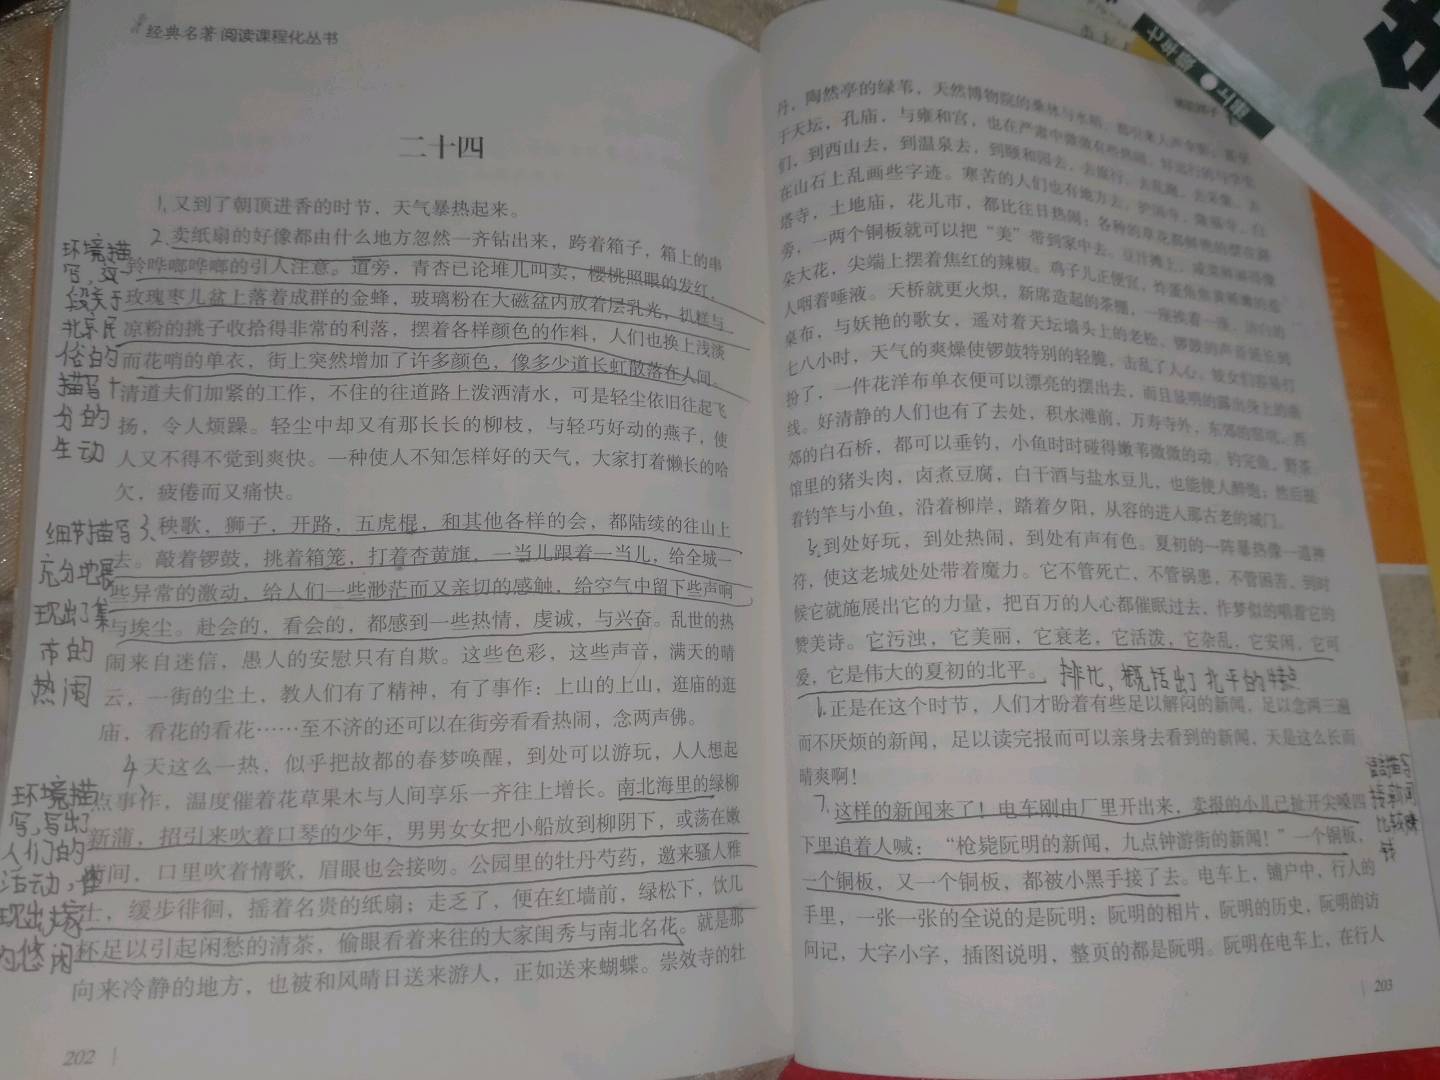 经典名著 阅读课程化丛书
二十四
1.又到了朝顶进香的时节，天气暴热起来。
2.卖纸扇的好像都由什么地方忽然一齐钻出来，跨着箱子，箱上的串
铃哗啷哗啷的引人注意。道旁，青杏已论堆儿叫卖，樱桃照眼的发红，
玫瑰枣儿盆上落着成群的金蜂，玻璃粉在大磁盆内放着层乳光，扒糕与
凉粉的挑子收拾得非常的利落，摆着各样颜色的作料，人们也换上浅淡
而花哨的单衣，街上突然增加了许多颜色，像多少道长虹散落在人间。
清道夫们加紧的工作，不住的往道路上泼洒清水，可是轻尘依旧往起飞
扬，令人烦躁。轻尘中却又有那长长的柳枝，与轻巧好动的燕子，使
人又不得不觉到爽快。一种使人不知怎样好的天气，大家打着懒长的哈
欠，疲倦而又痛快。
3.秧歌，狮子，开路，五虎棍，和其他各样的会，都陆续的往山上
去。敲着锣鼓，挑着箱笼，打着杏黄旗，一当儿跟着一当儿，给全城一
些异常的激动，给人们一些渺茫而又亲切的感触，给空气中留下些声响
与埃尘。赴会的，看会的，都感到一些热情，虔诚，与兴奋。乱世的热
闹来自迷信，愚人的安慰只有自欺。这些色彩，这些声音，满天的晴
云，一街的尘土，教人们有了精神，有了事作：上山的上山，逛庙的逛
庙，看花的看花……至不济的还可以在街旁看看热闹，念两声佛。
4.天这么一热，似乎把故都的春梦唤醒，到处可以游玩，人人想起
点事作，温度催着花草果木与人间享乐一齐往上增长。南北海里的绿柳
新蒲，招引来吹着口琴的少年，男男女女把小船放到柳阴下，或荡在嫩
荷间，口里吹着情歌，眉眼也会接吻。公园里的牡丹芍药，邀来骚人雅
士，缓步徘徊，摇着名贵的纸扇；走乏了，便在红墙前，绿松下，饮几
杯足以引起闲愁的清茶，偷眼看着来往的大家闺秀与南北名花。就是那
向来冷静的地方，也被和风晴日送来游人，正如送来蝴蝶。崇效寺的牡
202
环境描
写，这
段关于
北京民
俗的
描写十
分的
生动
细节描写
充分地展
现出了集
市的
热闹
环境描
写，写出了
人们的
活动，
现出大家
的悠闲
丹，陶然亭的绿苇，天然博物院的桑林与水稻，都引来人声伞影；甚至
于天坛，孔庙，与雍和宫，也在严肃中微微有些热闹。好远行的与学生
们，到西山去，到温泉去，到颐和园去，去旅行，去乱跑，去采集，去
在山石上乱画些字迹。寒苦的人们也有地方去，护国寺，隆福寺，白
塔寺，土地庙，花儿市，都比往日热闹：各种的草花都鲜艳的摆在路
旁，一两个铜板就可以把“美”带到家中去。豆汁摊上，咸菜鲜丽得像
朵大花，尖端上摆着焦红的辣椒。鸡子儿正便宜，炸蛋角焦黄稀嫩的惹
人咽着唾液。天桥就更火炽，新席造起的茶棚，一座挨着一座，洁白的
桌布，与妖艳的歌女，遥对着天坛墙头上的老松。锣鼓的声音延长到
七八小时，天气的爽燥使锣鼓特别的轻脆，击乱了人心。妓女们容易打
扮了，一件花洋布单衣便可以漂亮的摆出去，而且显明的露出身上的曲
线。好清静的人们也有了去处，积水滩前，万寿寺外，东郊的窑坑，西
郊的白石桥，都可以垂钓，小鱼时时碰得嫩苇微微的动。钓完鱼，野茶
馆里的猪头肉，卤煮豆腐，白干酒与盐水豆儿，也能使人醉饱；然后提
着钓竿与小鱼，沿着柳岸，踏着夕阳，从容的进入那古老的城门。
5.到处好玩，到处热闹，到处有声有色。夏初的一阵暴热像一道神
符，使这老城处处带着魔力。它不管死亡，不管祸患，不管困苦，到时
候它就施展出它的力量，把百万的人心都催眠过去，作梦似的唱着它的
赞美诗。它污浊，它美丽，它衰老，它活泼，它杂乱，它安闲，它可
爱，它是伟大的夏初的北平。
排比，概括出了北平的特点
6.正是在这个时节，人们才盼着有些足以解闷的新闻，足以念两三遍
而不厌烦的新闻，足以读完报而可以亲身去看到的新闻，天是这么长而
晴爽啊！
7.这样的新闻来了！电车刚由厂里开出来，卖报的小儿已扯开尖嗓四
下里追着人喊：“枪毙阮明的新闻，九点钟游街的新闻！”一个铜板，
一个铜板，又一个铜板，都被小黑手接了去。电车上，铺户中，行人的
手里，一张一张的全说的是阮明：阮明的相片，阮明的历史，阮明的访
问记，大字小字，插图说明，整页的都是阮明。阮明在电车上，在行人
语言描写
新闻
比较赚
钱
203